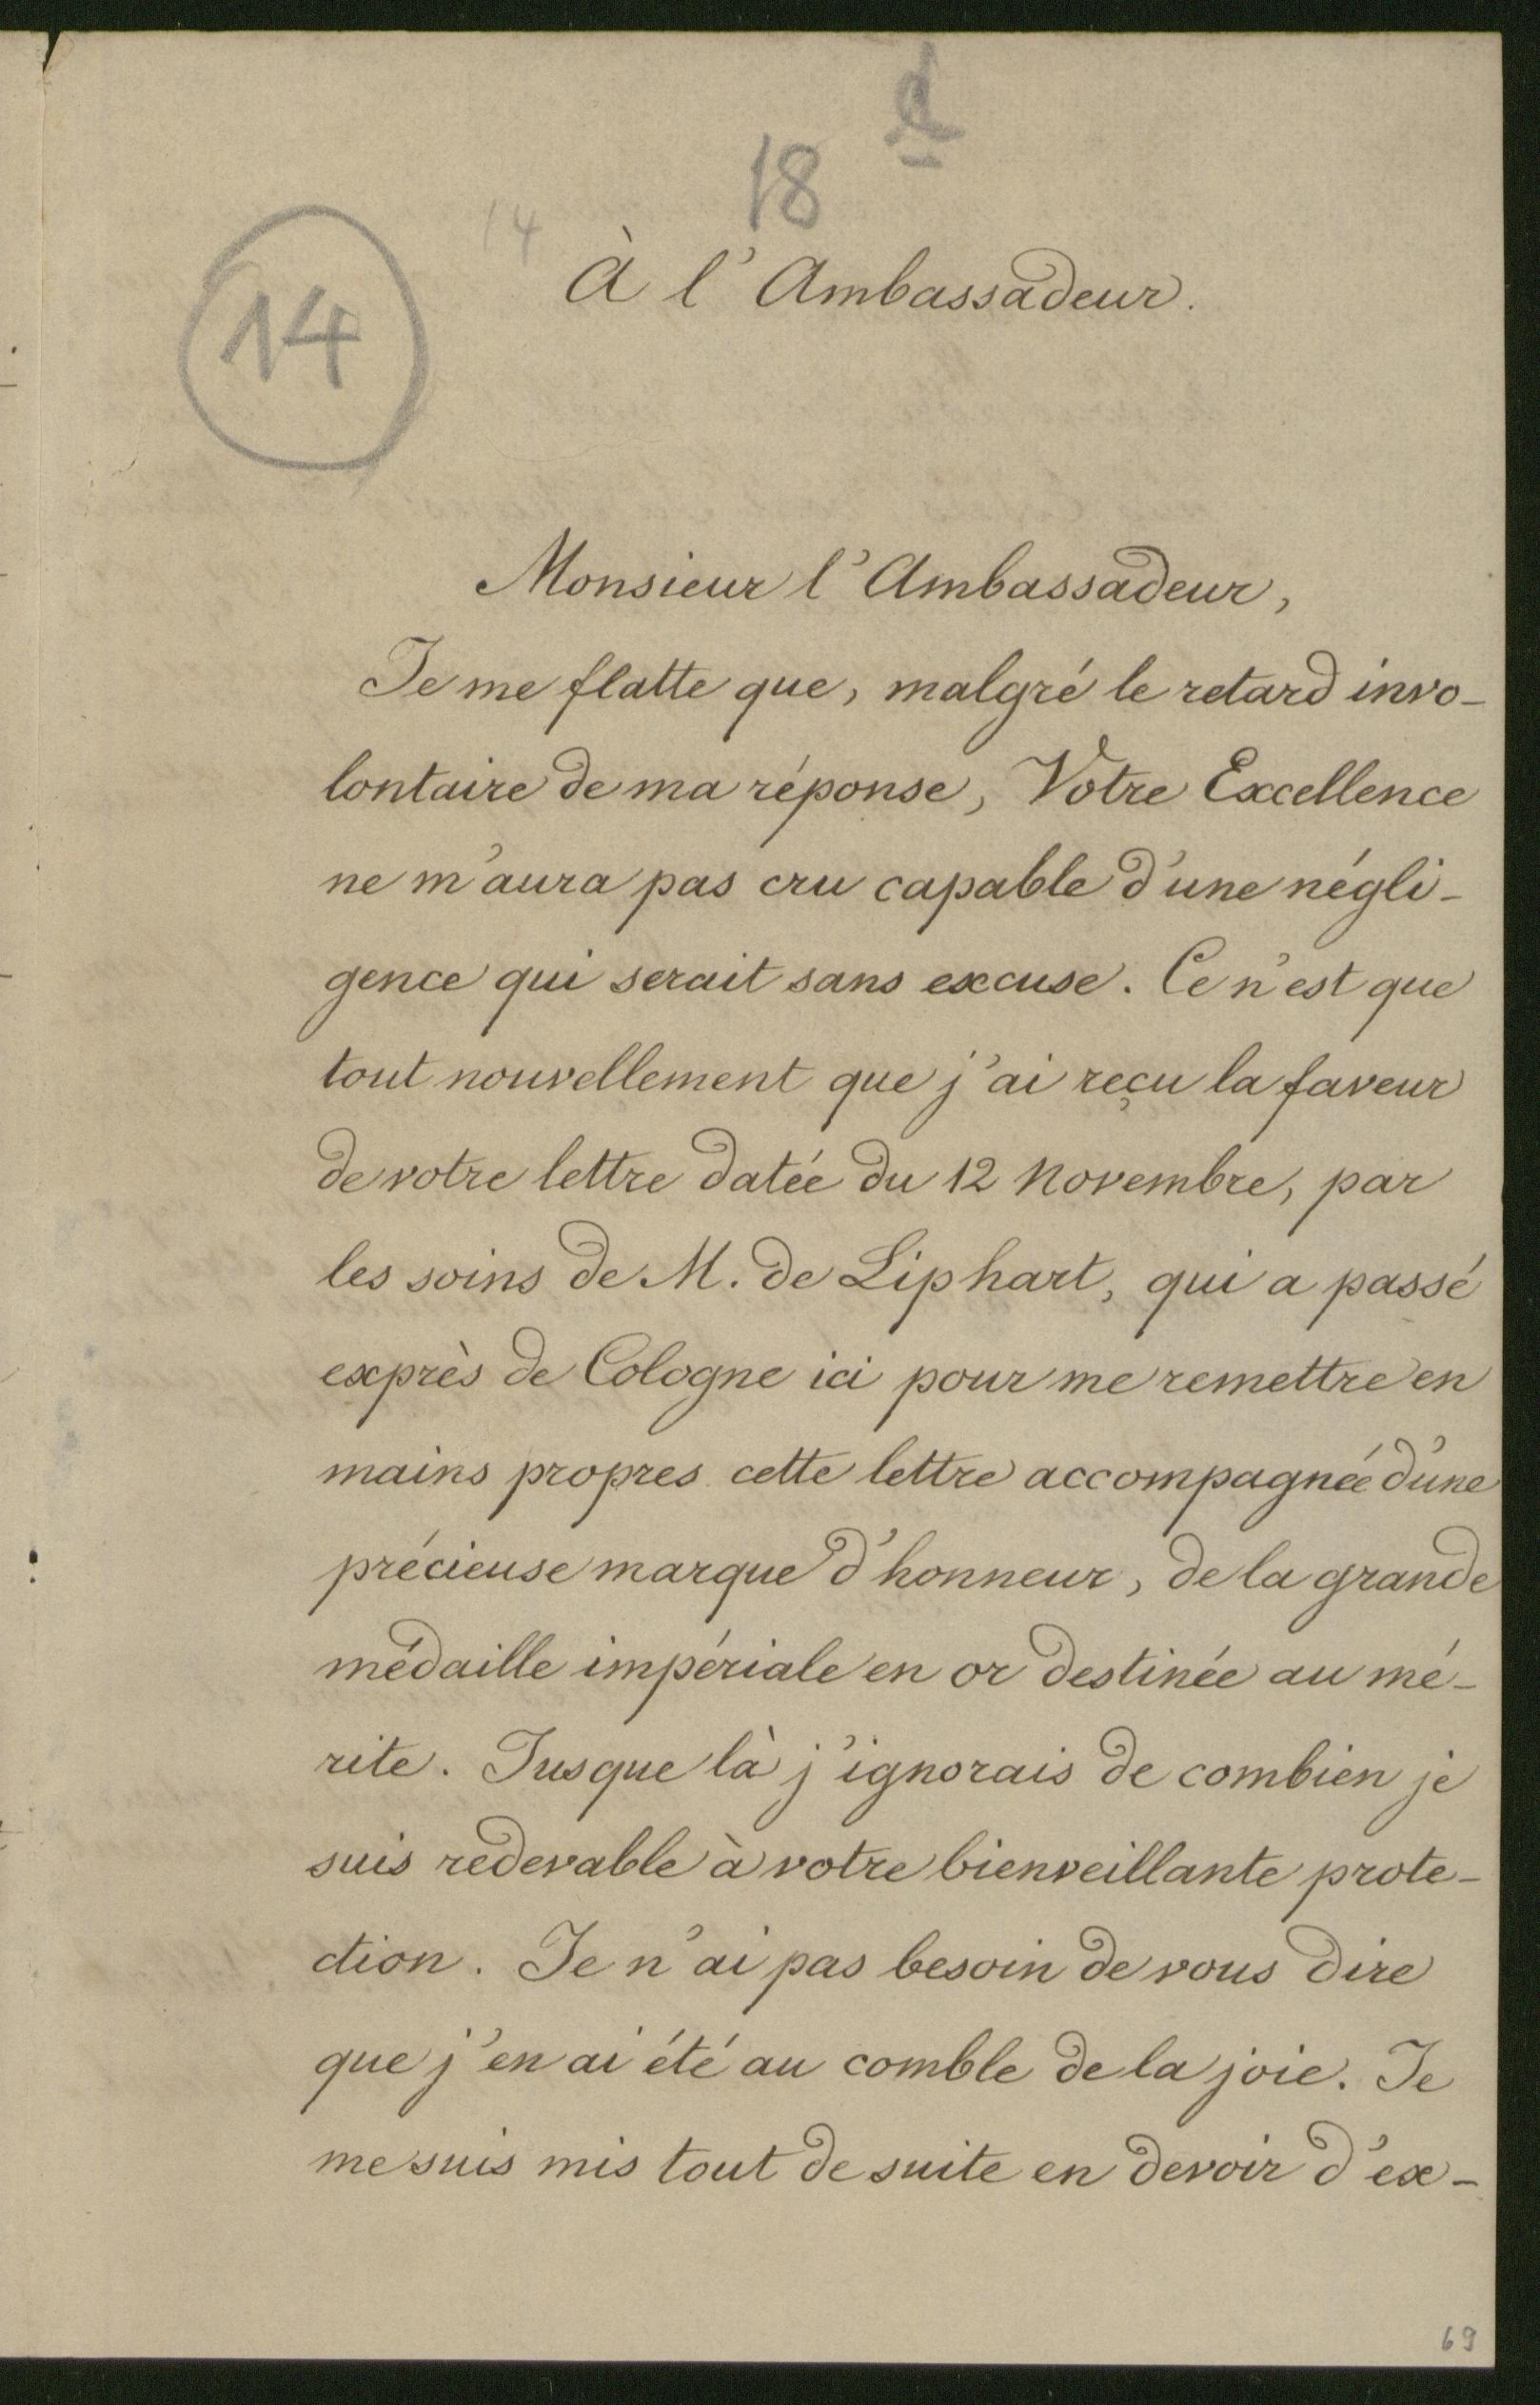 d
18
14
14
À l'Ambassadeur.
Monsieur l'Ambassadeur,
Je me flatte que, malgré le retard invo-
lontaire de ma réponse, Votre Excellence
ne m'aura pas cru capable d'une négli-
gence qui serait sans excuse. Ce n'est que
tout nouvellement que j'ai reçu la faveur
de votre lettre datée du 12 Novembre, par
les soins de M. de Liphart, qui a passé
exprès de Cologne ici pour me remettre en
mains propres cette lettre accompagnée d'une
précieuse marque d'honneur, de la grande
médaille impériale en or destinée au mé-
rite. Jusque là j'ignorais de combien je
suis redevable à votre bienveillante prote-
ction. Je n'ai pas besoin de vous dire
que j'en ai été au comble de la joie. Je
me suis mis tout de suite en devoir d'ex-
69